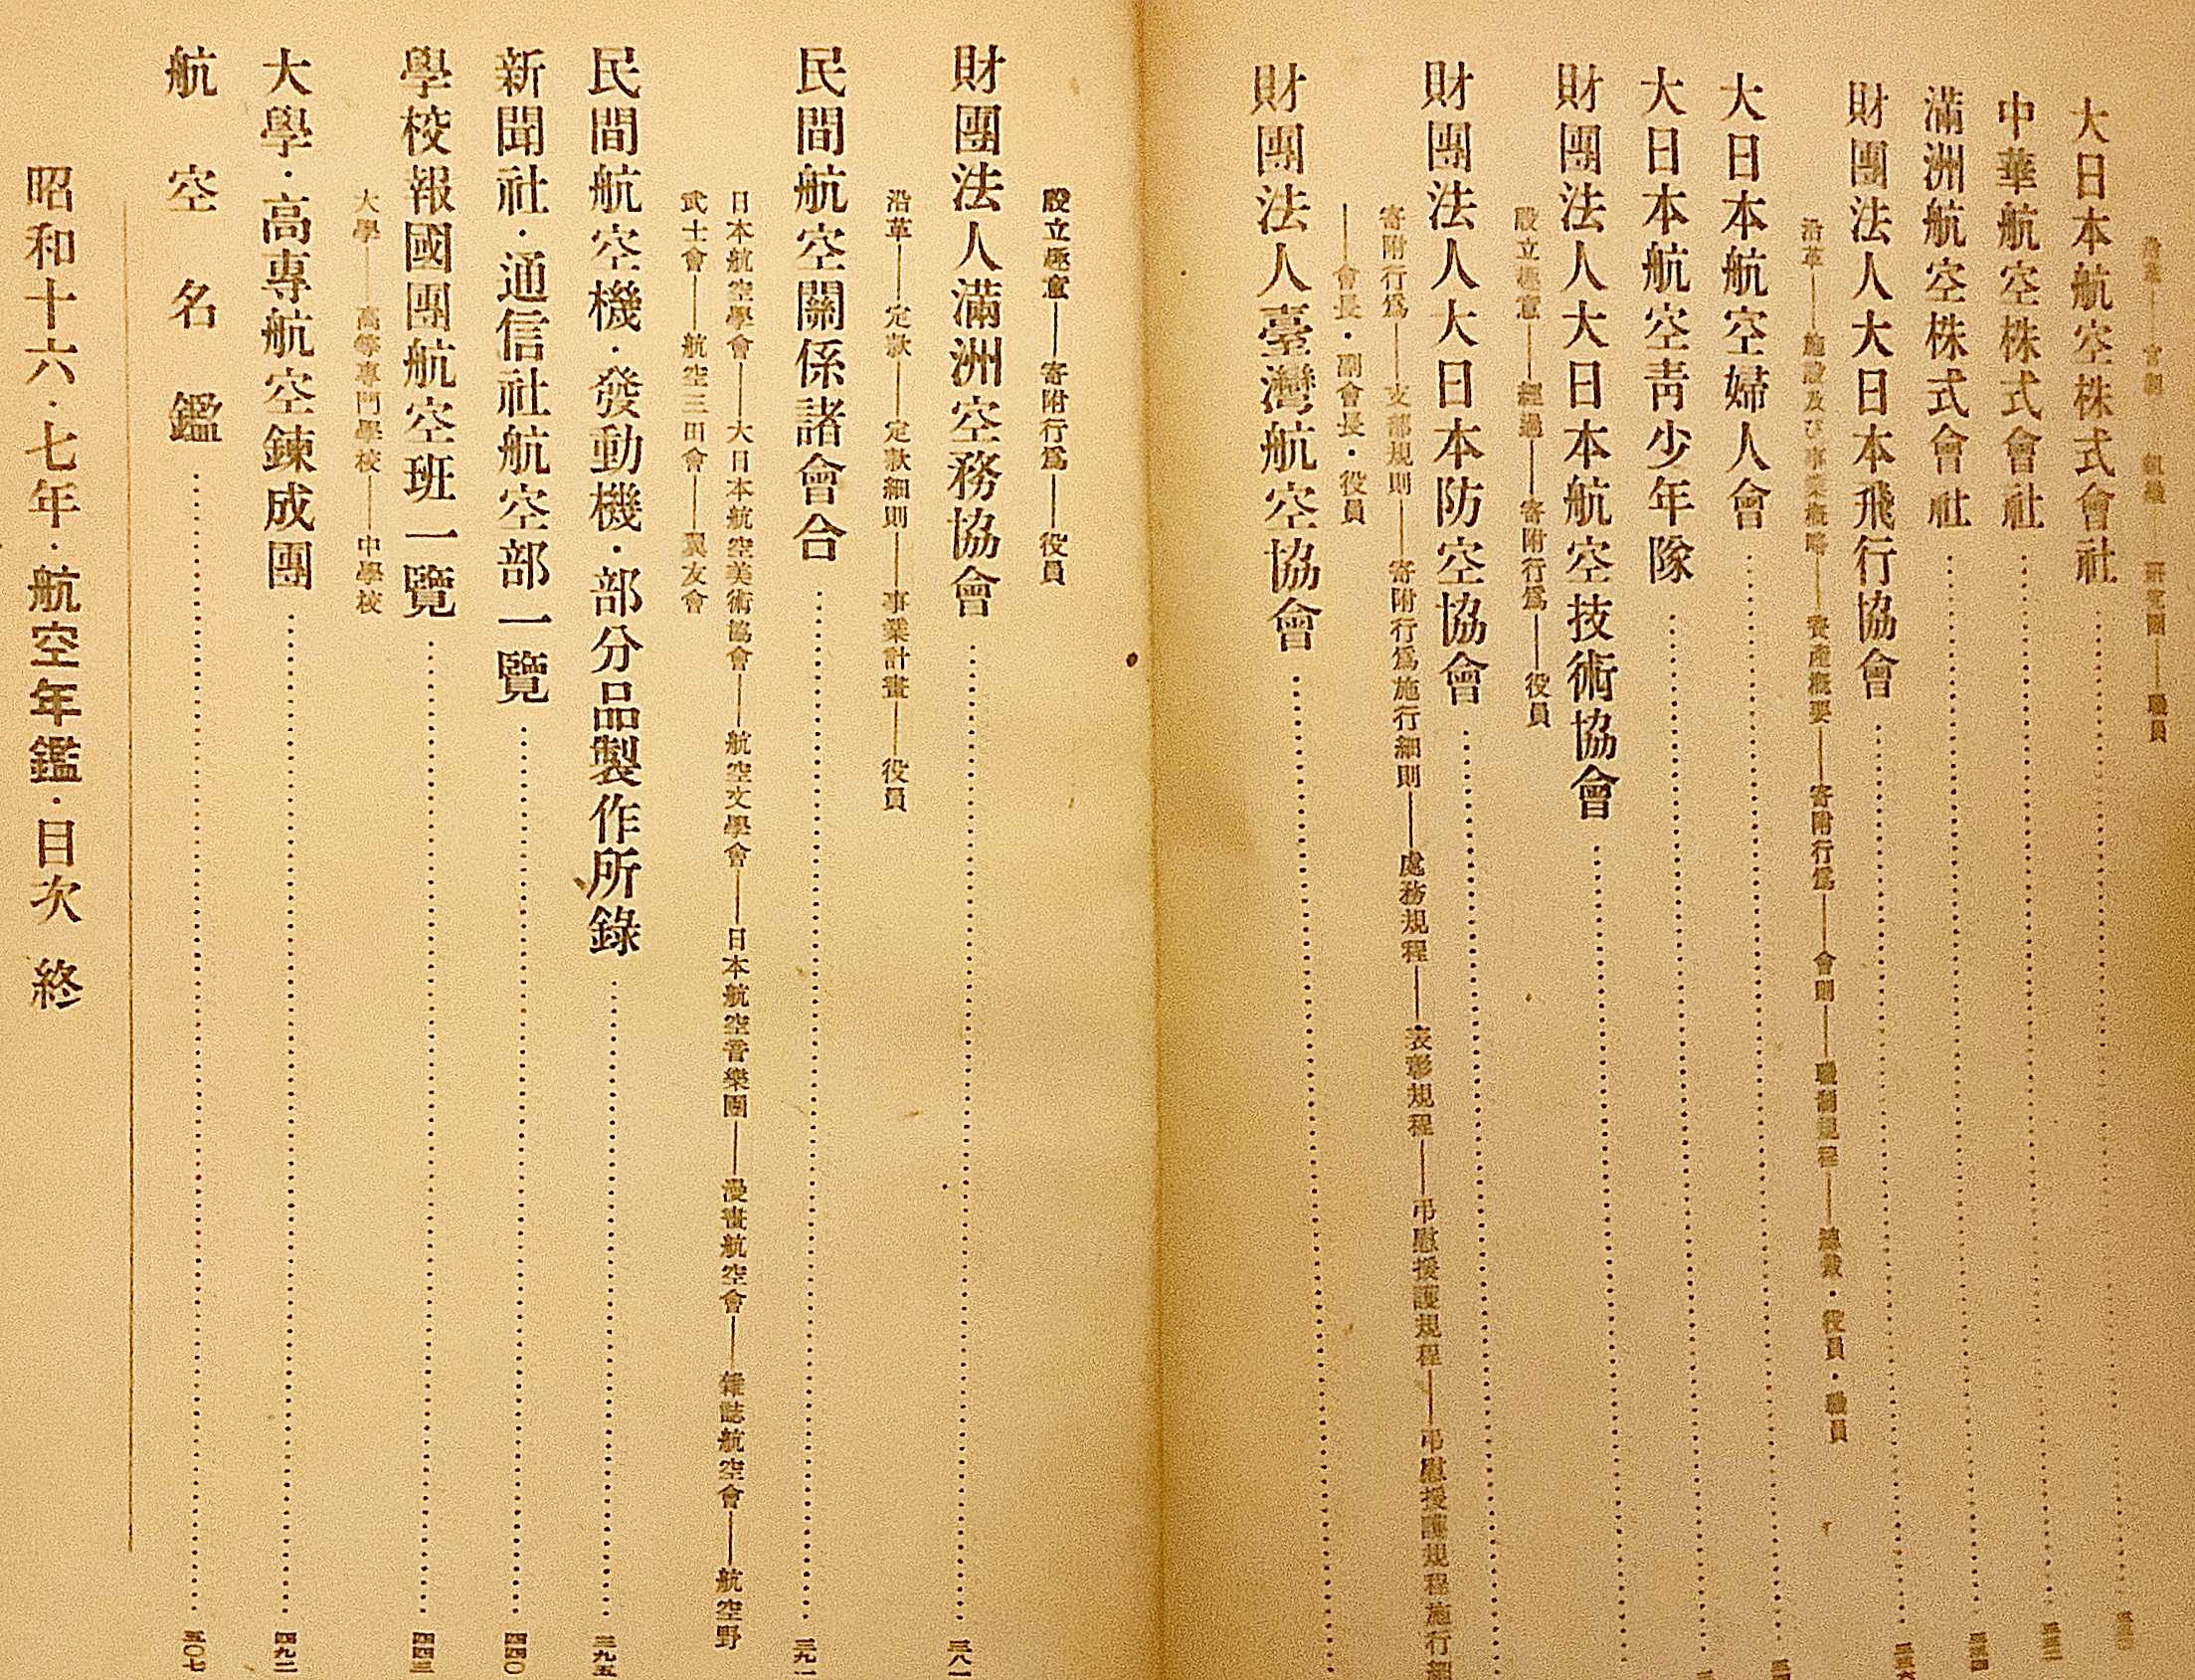 沿革――官制――組織――研究團――職員
大日本航空株式會社
中華航空株式會社
滿洲航空株式會社
財團法人大日本飛行協會
沿革――施設及び事業概略――資產概要――寄附行爲――會則――職制規程――總裁・役員・職員
大日本航空婦人會
大日本航空靑少年隊
財團法人大日本航空技術協會
設立趣意――經過――寄附行爲――役員
財團法人大日本防空協會
寄附行爲――支部規則――寄附行爲施行細則――處務規程――表彰規程――弔慰援護規程――弔慰援護規程施行細
――會長・副會長・役員
財團法人臺灣航空協會
設立趣意――寄附行爲――役員
財團法人滿洲空務協會……三八一
沿革――定款――定款細則――事業計畫――役員
民間航空關係諸會合……三九一
日本航空學會――大日本航空美術協會――航空文學會――日本航空音樂團――漫畫航空會――雜誌航空會――航空野
武士會――航空三田會――翼友會
民間航空機・發動機・部分品製作所錄……三九五
新聞社・通信社航空部一覽……四四〇
學校報國團航空班一覽……四四三
大學――高等專門學校――中學校
大學・高專航空鍊成團……四九二
航空名鑑……五〇七
昭和十六・七年・航空年鑑・目次 終